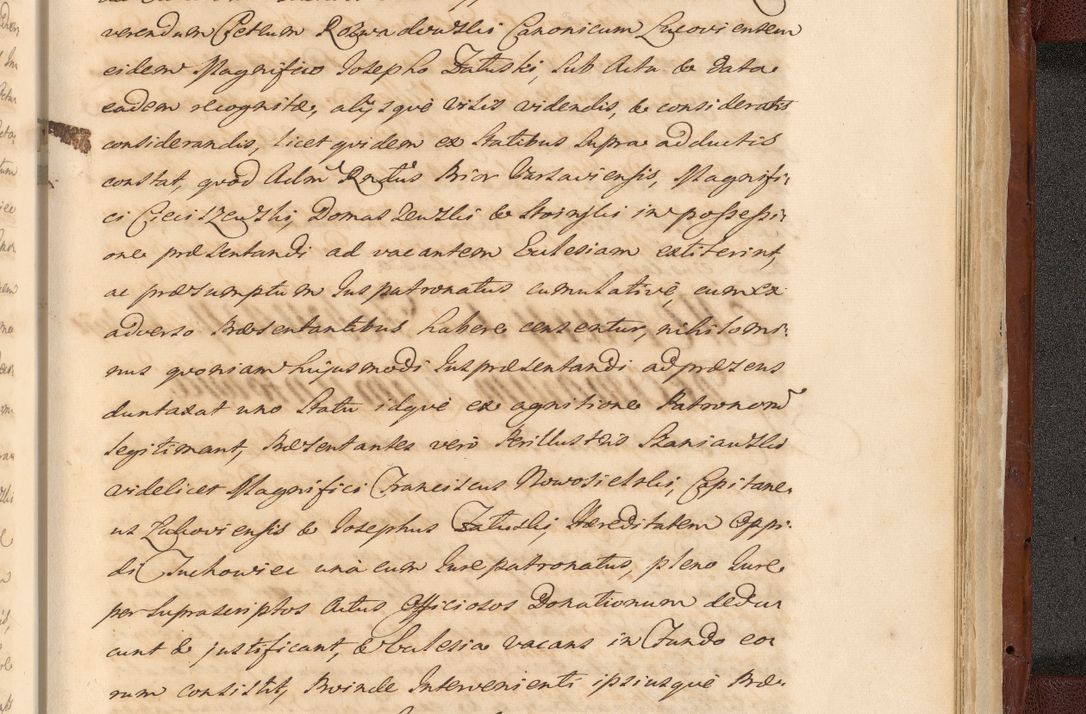 verendum Petrum Rozwadowski Canonicum Lucoviensem
eidem Magnifico Josepho Załuski, sub Actu & data
eadem recognitæ, alijsquè visis videndis, & consideratis
considerandis, licet quidem ex Statibus supra adductis
constat, quod Adm Rndus Prior Varsaviensis, Magnifi-
ci Cieciszewski, Domaszewski & Stoinski in possessi-
one præsentandi ad vacantem Ecclesiam extiterint,
ac præsumptum Juspatronatus cumulative, cum ex
adverso Præsentantibus habere censentur, nihilomi-
nus quoniam hujusmodi Juspræsentandi ad præsens
duntaxat uno Statu idquè ex agnitione Patronorum
legitimant, Præsentantes verò Perillustris Szaniawski
videlicet Magnifici Franciscus Nowosielski, Capitane-
us Lukoviensis & Josephus Załuski, Hæreditatem Oppi-
di Tuchowiec unà cum Jure patronatus, pleno Jure
per suprascriptos Actus Officiosos Donationum dedu-
cunt & justificant, & Ecclesia vacans in Fundo eo-
rum consistit, Proinde Intervenienti ipsiusquè Præ-